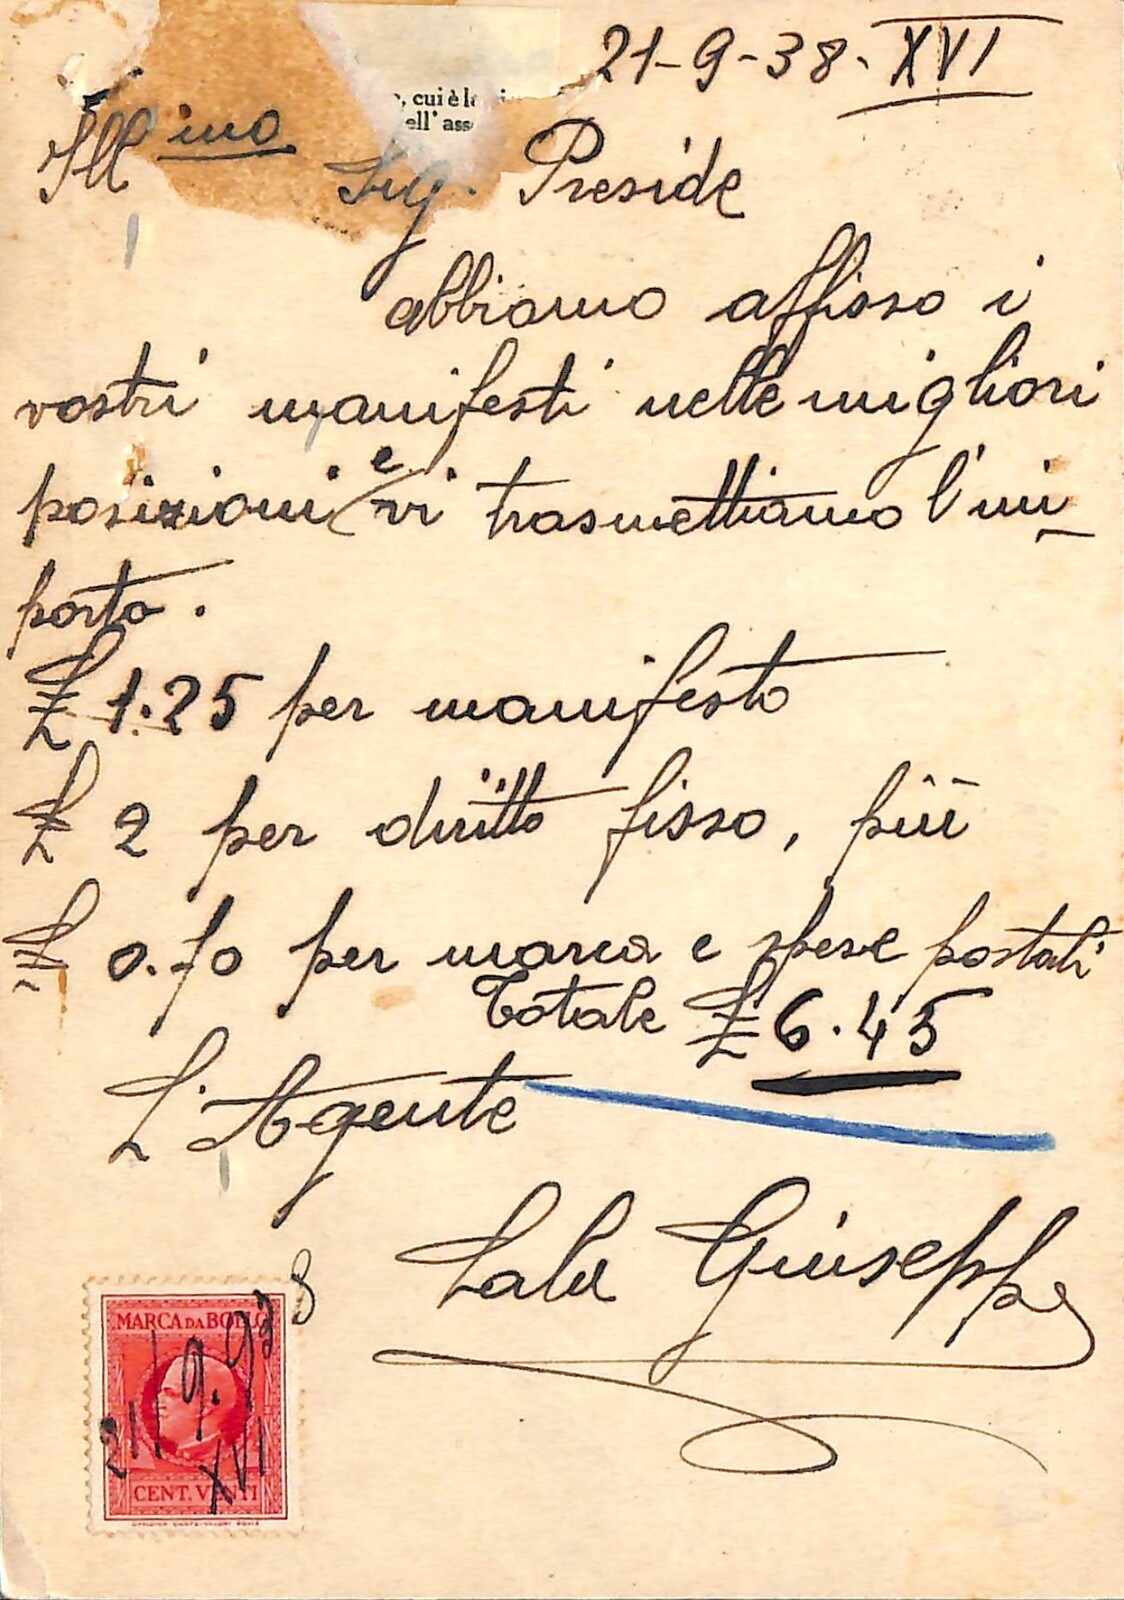 21-9-38. XVI
, cui è la
ell' ass
Ill mo Sig. Preside
abbiamo affisso i
vostri manifesti nelle migliori
posizioni e vi trasmettiamo l'im
porto.
£ 1.25 per manifesto
£ 2 per diritto fisso, più
£ 0.70 per marca e spese postali
Totale £ 6.45
L'Agente
Lala Giuseppe
MARCA DA BOLLO
21.9.938
XVI
CENT. VENTI
OFFICINA CARTE-VALORI ROMA